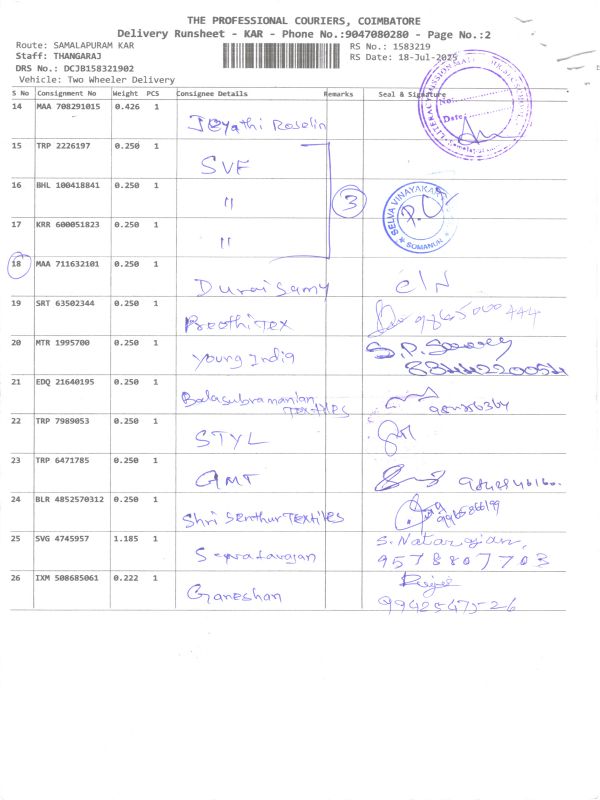 THE PROFESSIONAL COURIERS, COIMBATORE
Delivery Runsheet - KAR - Phone No.:9047080280 - Page No.:2
Route: SAMALAPURAM KAR RS No.: 1583219
Staff: THANGARAJ RS Date: 18-Jul-2025
DRS No.: DCJB158321902
Vehicle: Two Wheeler Delivery
S No Consignment No Weight PCS Consignee Details Remarks Seal & Signature
No.
Date
14 MAA 708291015 0.426 1
15 TRP 2226197 0.250 1
SVF
16 BHL 100418841 0.250 1
"
3
SELVA VINAYAKA
SOMANUR
17 KRR 600051823 0.250 1
"
18 MAA 711632101 0.250 1
Duraisamy
19 SRT 63502344 0.250 1
20 MTR 1995700 0.250 1
Young India
21 EDQ 21640195 0.250 1
Balasubramanian
Textiles
22 TRP 7989053 0.250 1
STYL
23 TRP 6471785 0.250 1
GMT
24 BLR 4852570312 0.250 1
Shri Senthur Textiles
25 SVG 4745957 1.185 1
S. Natarajan,
9578807703
26 IXM 508685061 0.222 1
Ganeshan
9942547526